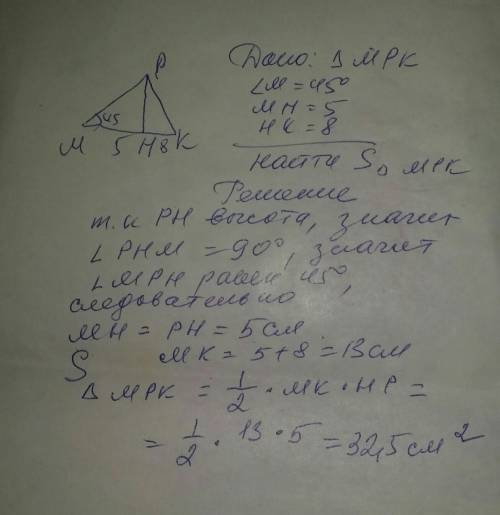 P
45
M 5 H 8 K
Дано: Δ МРК
∠M = 45°
MH = 5
HK = 8
Найти S Δ МРК
Решение
т.к PH высота, значит
∠ PHM = 90°, значит
∠ MPH равен 45°,
следовательно
MH = PH = 5 см
S MK = 5+8 = 13 см
Δ МРК = 1/2 · MK · HP =
= 1/2 · 13 · 5 = 32,5 см²